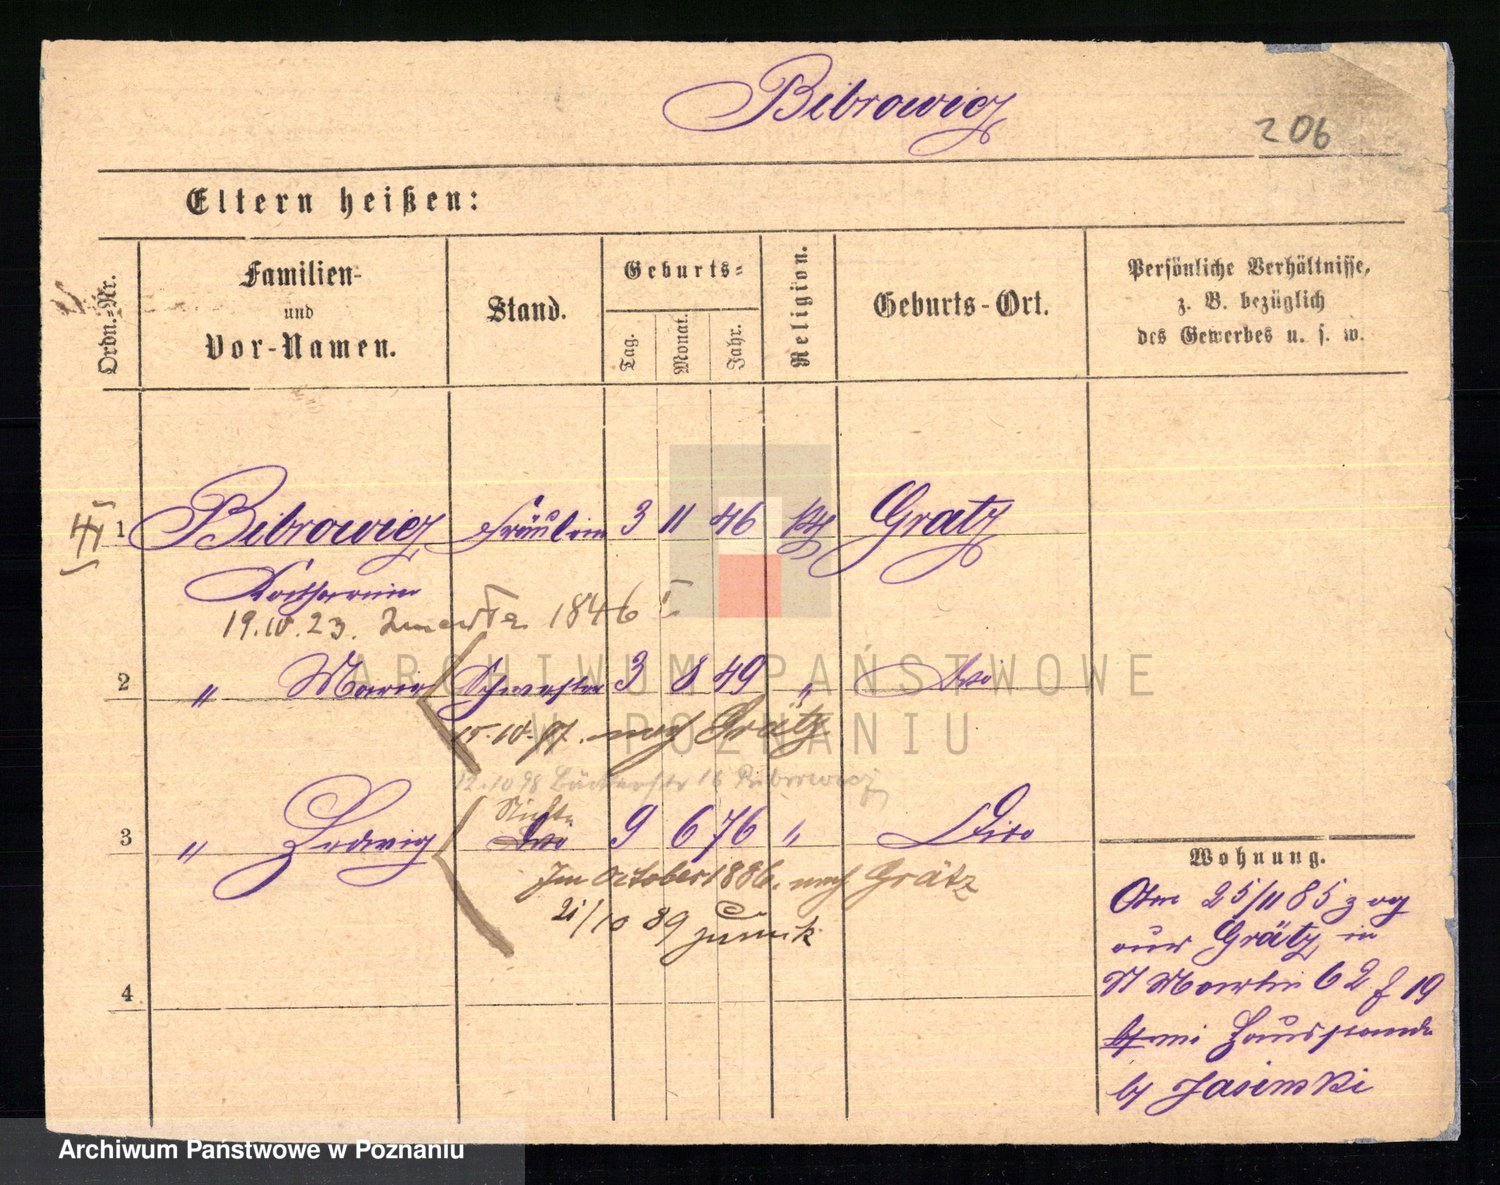 Bibrowicz
206
Eltern heißen:
Ordn.-Nr.
Familien-
und
Vor-Namen.
Stand.
Geburts-
Tag.
Monat.
Jahr.
Religion.
Geburts-Ort.
Persönliche Verhältnisse,
z. B. bezüglich
des Gewerbes u. s. w.
1 Bibrowicz Fräulein 3 11 46 kth Gratz
Katharina
19. 10. 23. 1846
2 " Maria Schwester 3 8 49 " dto
15.10.97. nach Grätz
12.10 98 Bäckerstr 16 Bibrowicz
Nichte
3 " Hedwig dto 9 6 76 " Dito
Im October 1886. nach Grätz
21/10 89 zurück
4
Wohnung.
Am 25/11 85 zog
aus Grätz in
St Martin 62 f 19
Hausstande
by Jasinski
ARCHIWUM PAŃSTWOWE
W POZNANIU
Archiwum Państwowe w Poznaniu